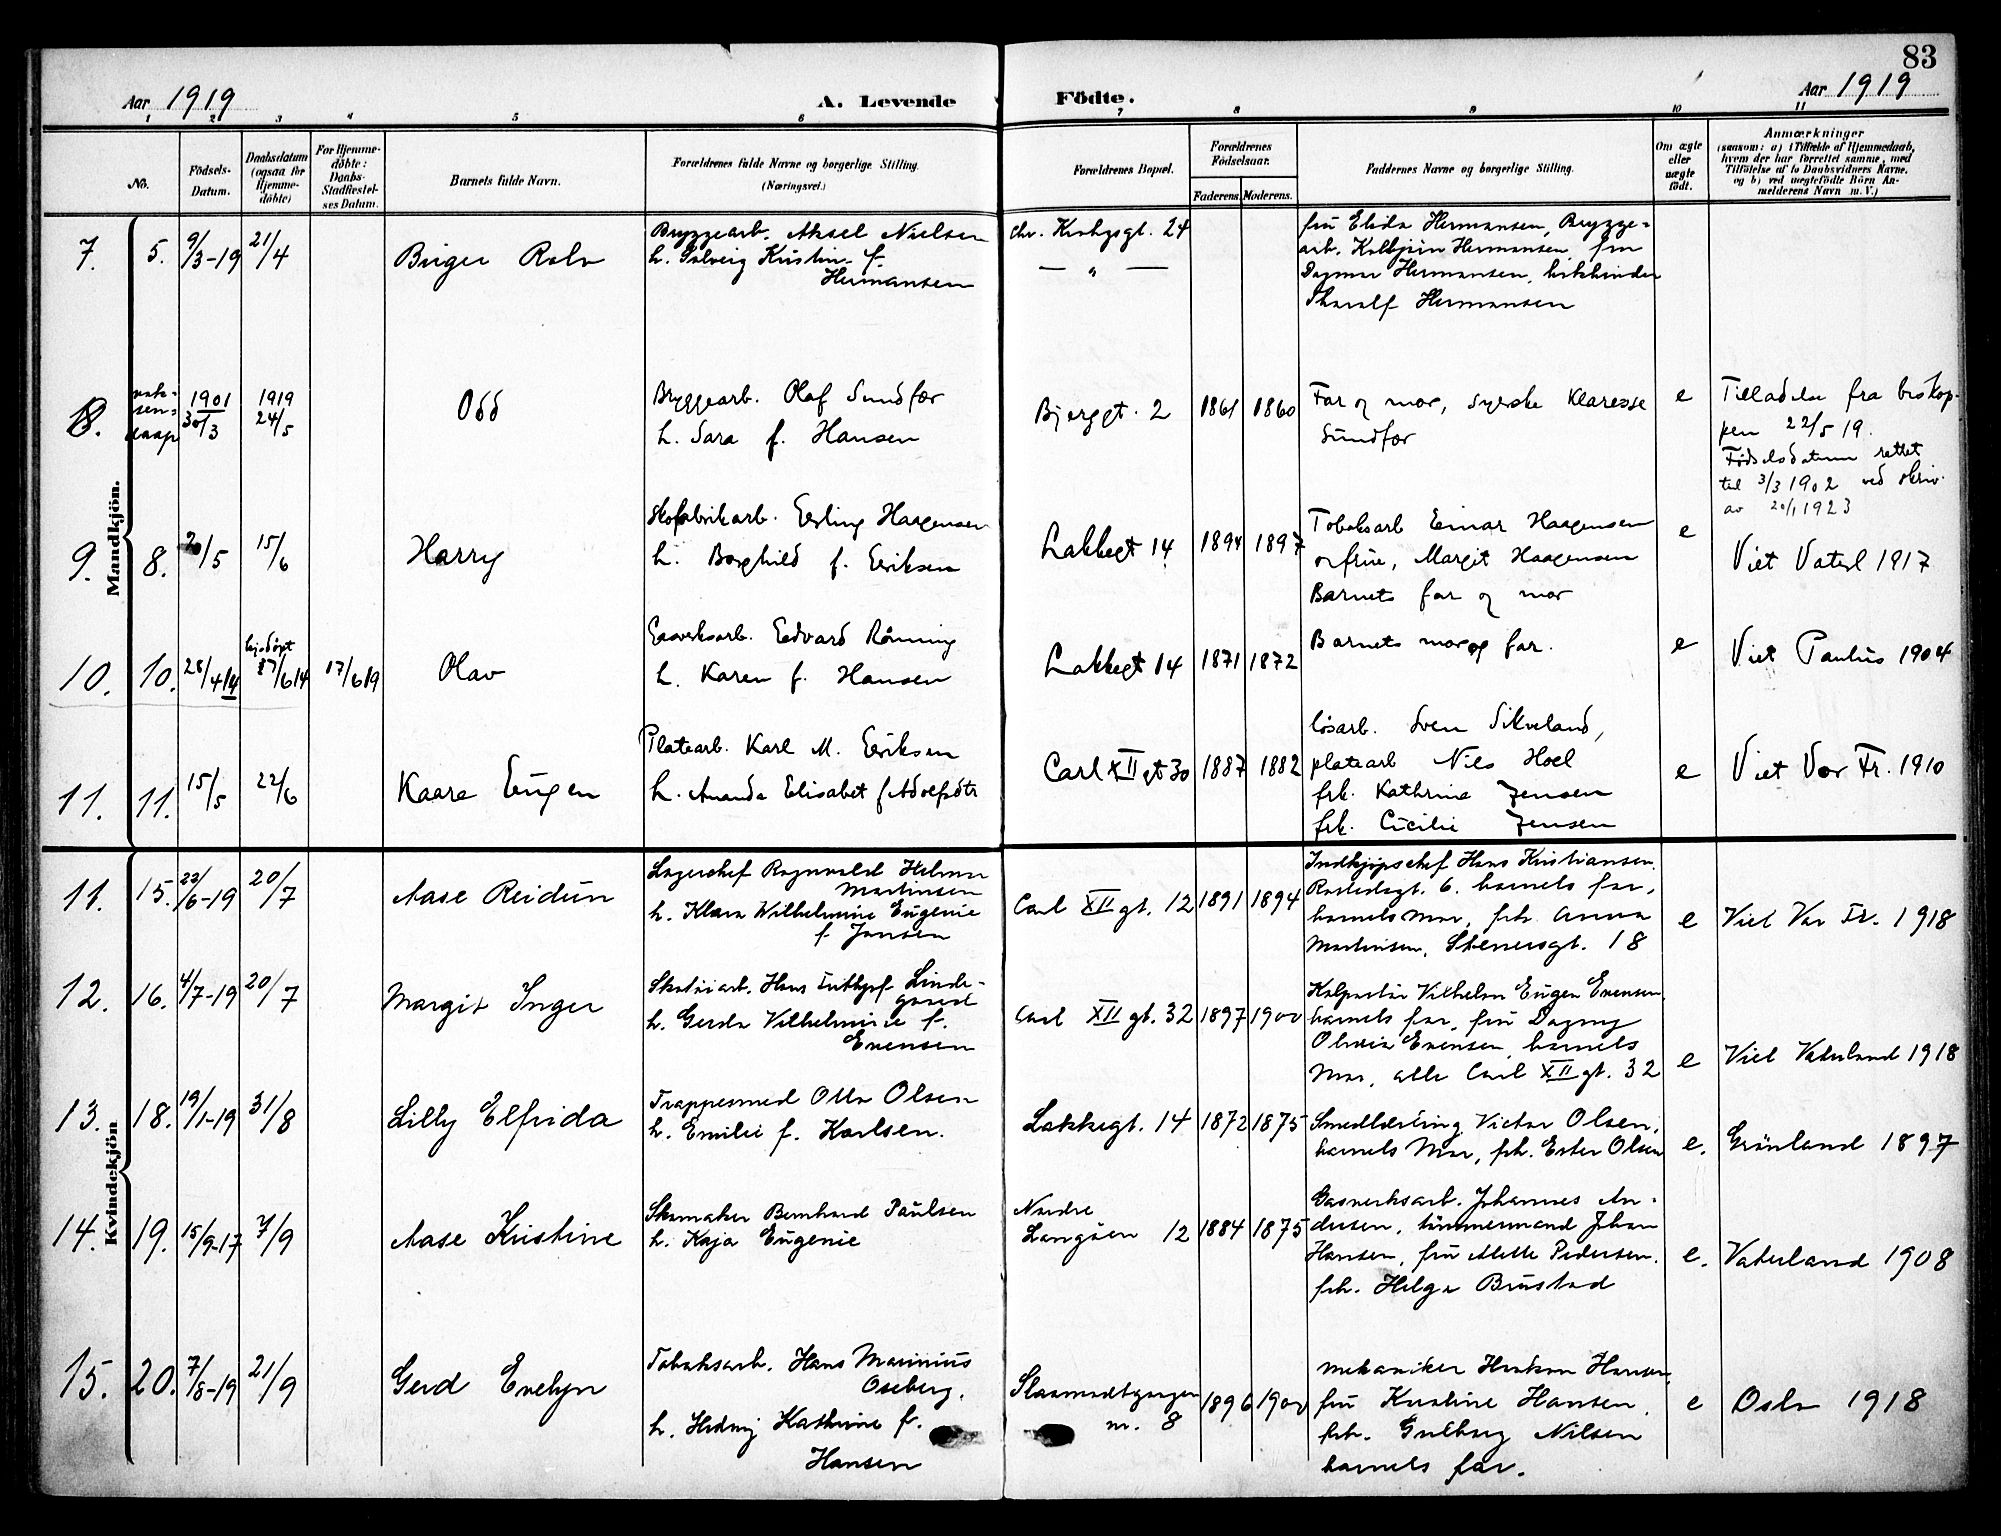 83
Aar 1919 A. Levende Födte. Aar 1919
1 2 3 4 5 6 7 8 9 10 11
No.
Födsels-Datum.
Daabsdatum (ogsaa for Hjemme-döbte)
For Hjemme-döbte: Daabs-Stadfæstel-ses Datum.
Barnets fulde Navn.
Forældrenes fulde Navne og borgerlige Stilling.
(Næringsvei.)
Forældrenes Bopæl.
Forældrenes Födselsaar.
Faderens. Moderens.
Faddernes Navne og borgerlige Stilling.
Om ægte eller uægte födt.
Anmærkninger
(saasom: a) i Tilfælde af Hjemmedaab, hvem der har forrettet samme, med Tilföielse af to Daabsvidners Navne. og b) ved uægtefödte Börn Anmelderens Navn m. V.)
Mandkjön.
7. 5. 9/3-19 21/4 Birger Rolv
Bryggearb. Aksel Nielsen
h. Solveig Kristine f.
Hermansen
Chr. Krohgsgt. 24
— " —
fru Elida Hermansen, Brygge-
arb. Kolbjørn Hermansen, fru
Dagmar Hermansen,
Tharalf Hermansen
8. vok-
sen-
daap
1901
30/3
1919
24/5
Odd
Bryggearb. Olaf Sundfær
h. Sara f. Hansen
Bjerggt. 2 1861 1860
Far og mor, syerske Klaresse
Sundfor
e
Tilladelse fra biskop-
pen 22/5 19.
Fødselsdatum rettet
til 3/3 1902 ved skriv.
av 20/1 1923
9. 8. 20/5 15/6 Harry
Skofabrikarb. Erling Haagensen
h. Borghild f. Eriksen
Lakkegt 14 1894 1897
Tobaksarb Einar Haagensen
frue, Margit Haagensen
Barnets far og mor
e
Viet Vaterl 1917
10. 10. 28/4 14
hj.döpt
17/6 14 17/6 19 Olav
Gasverksarb. Edvard Rånning
h. Karen f. Hansen
Lakkegt 14 1871 1872
Barnets mor og far.
e
Viet Paulus 1904
11. 11. 15/5 22/6 Kaare Eugen
Platearb. Karl M. Eriksen
h. Amanda Elisabet f Adolfsdtr
Carl XII gt 30 1887 1882
løsarb. Sven Sikveland,
platearb Nils Hoel
frk. Kathrine Jensen
frk. Cicilie Jensen
e
Viet Vor Fr. 1910
Kvindekjön
11. 15. 23/6-19 20/7 Aase Reidun
Lagerchef Ragnvald Helmer
Martinsen
h. Klara Wilhelmine Eugenie
f. Jansen
Carl XII gt. 12 1891 1894
Indkjøpschef Hans Kristiansen
6. barnets far,
barnets Mor, frk. Anna
Martinsen, Stenersgt. 18
e
Viet Vor Fr. 1918
12. 16. 4/7-19 20/7 Margit Inger
Skotøiarb. Hans Linde-
gaard
h. Gerda Vilhelmine f.
Evensen
Carl XII gt. 32 1897 1900
Kolportør Vilhelm Eugen Evensen.
barnets far, fru Dagny
Olivia Evensen, barnets
Mor, alle Carl XII gt. 32
e
Viet Vaterland 1918
13. 18. 19/1-19 31/8 Lilly Elfrida
Trappesmed Otto Olsen
h. Emilie f. Karlsen.
Lakkegt. 14 1872 1875
Smedlærling Victor Olsen,
barnets Mor, frk. Ester Olsen
e.
Grönland 1897
14. 19. 15/9-17 7/9 Aase Kristine
Skomaker Bernhard Paulsen
h. Kaja Eugenie
Nordre
Langöen 12 1884 1875
Gasverksarb. Johannes An-
dersen, tömmermand Johan
Hansen, fru Alette Pedersen.
frk. Helga Brustad
e.
Vaterland 1908
15. 20. 7/8-19 21/9 Gerd Evelyn
Tobaksarb. Hans Marinius
Oseberg.
h. Hedvig Kathrine f.
Hansen
nr. 8 1896 1900
mekaniker Haakon Hansen,
fru Kristine Hansen,
frk. Gudborg Nilsen
barnets far.
e
Oslo 1918